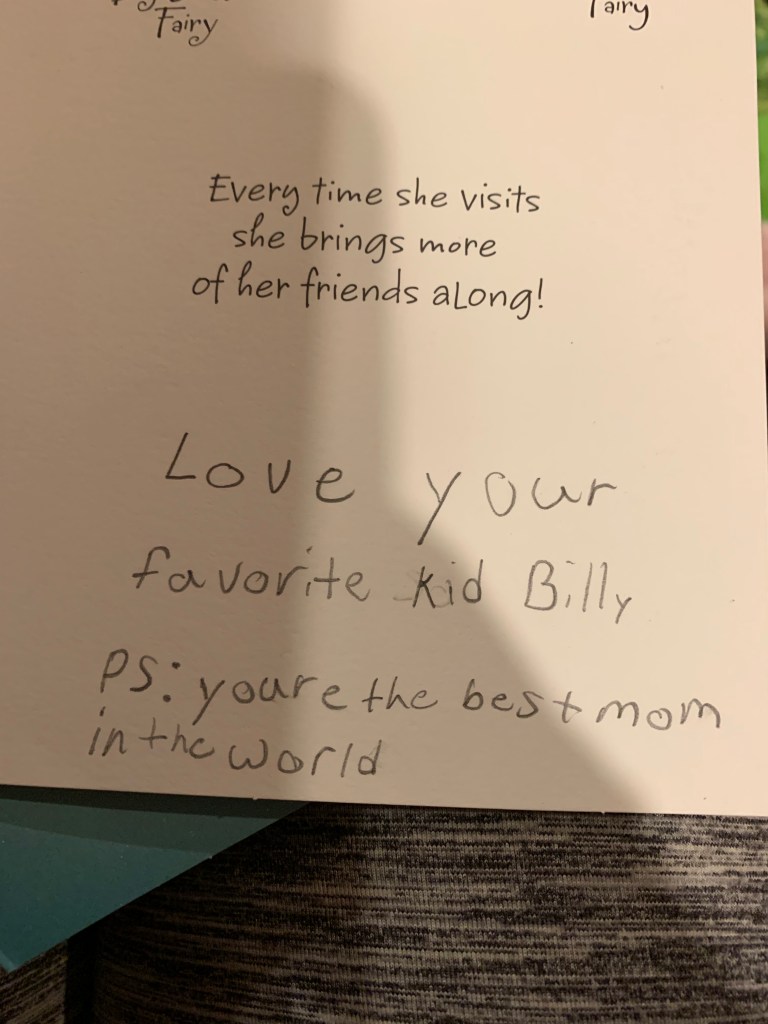 Fairy
Fairy
Every time she visits
she brings more
of her friends along!
Love your
favorite kid Billy
PS: youre the best mom
in the world